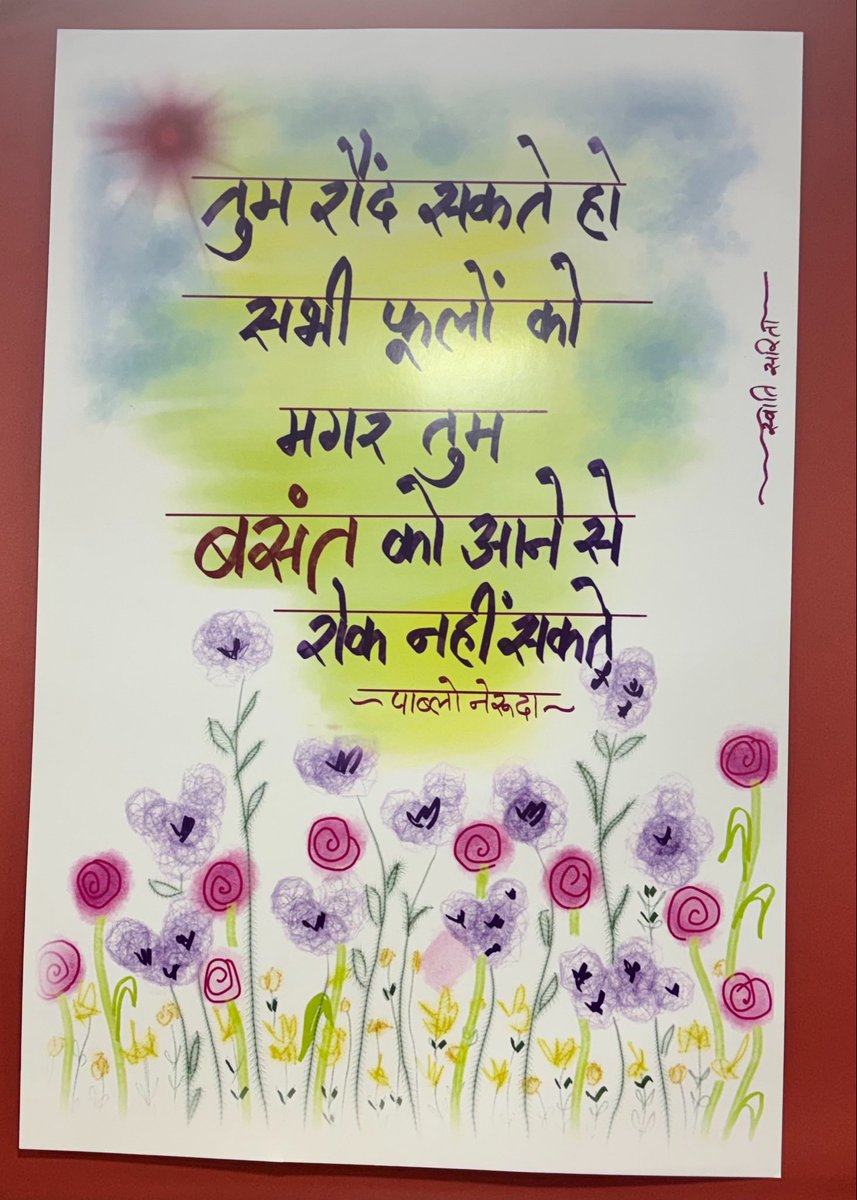 तुम रौंद सकते हो
सभी फूलों को
मगर तुम
बसंत को आने से
रोक नहीं सकते
~पाब्लो नेरूदा~
स्वाति सरिता